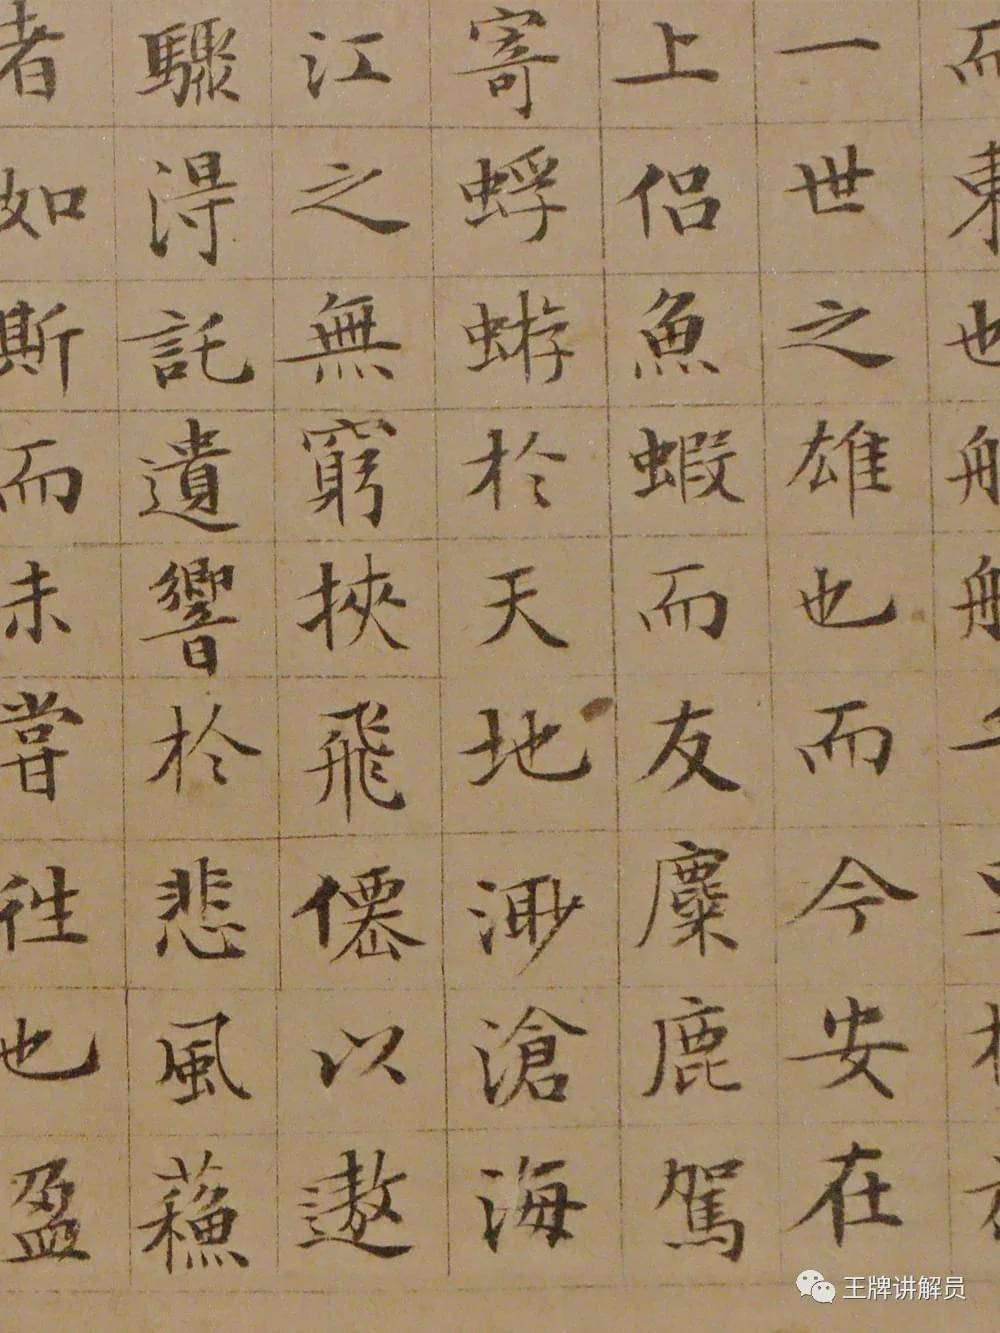 而東也舳艫千里
一世之雄也而今安在
上侣魚蝦而友麋鹿駕
寄蜉蝣於天地渺滄海
江之無窮挾飛僊以遨
驟得託遺響於悲風蘓
者如斯而未嘗往也盈
王牌讲解员